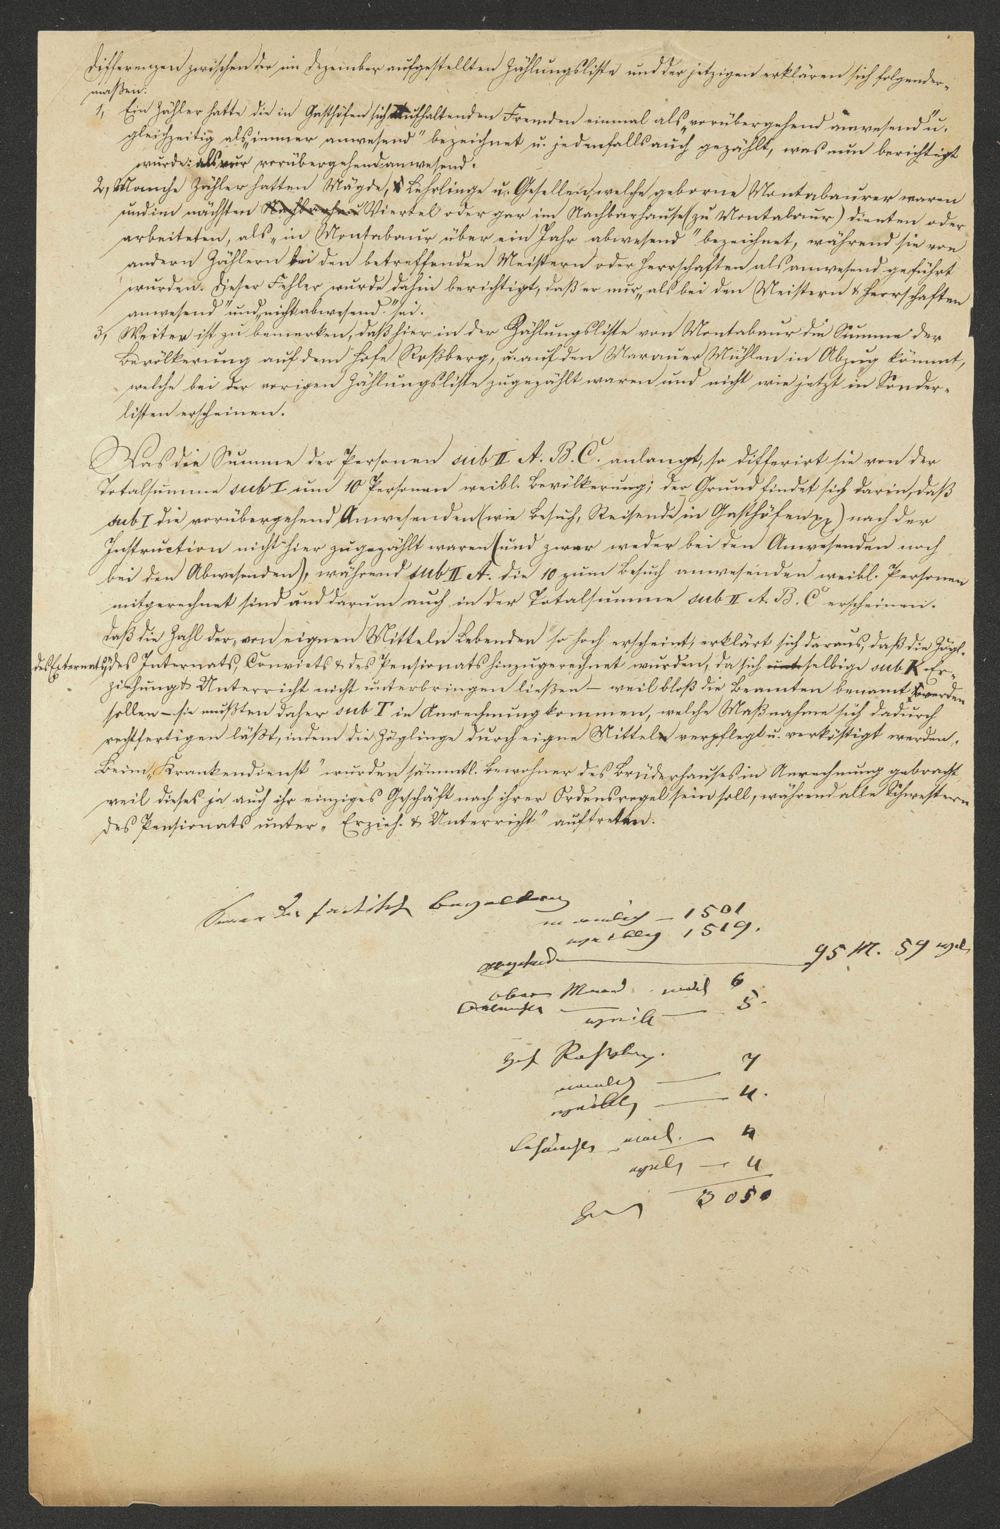 Differenzen zwischen der im Dezember aufgestellten Zählungsliste und der jetzigen erklären sich folgender-
maßen:
1, Ein Zähler hatte die in Gasthöfen sich aufhaltenden Fremden einmal als „vorübergehend anwesend" u.
gleichzeitig als „immer anwesend" bezeichnet u. jedenfalls auch gezählt, was nun berichtigt
wurde: als nur vorübergehend anwesend.
2, Manche Zähler hatten Mägde, Lehrlinge u. Gesellen, welche geborne Montabaurer waren
und im nächsten Viertel oder gar im Nachbarhause (zu Montabaur) dienten oder
arbeiteten, als „in Montabaur über ein Jahr abwesend" bezeichnet, während sie von
andern Zählern bei den betreffenden Meistern oder Herrschaften als anwesend geführt
wurden. Dieser Fehler wurde dahin berichtigt, daß er nur „als bei den Meistern & Herrschaften
anwesend" und „nicht abwesend" sei.
3, Weiter ist zu bemerken, daß hier in der Zählungsliste von Montabaur die Summe der
Bevölkerung auf dem Hofe Roßberg, u. auf den Mühlen in Abzug kömmt,
welche bei der vorigen Zählungsliste zugezählt waren und nicht wie jetzt in Sonder-
listen erscheinen.
Was die Summe der Personen sub II A. B. C. anlangt, so differirt sie von der
Totalsumme sub I um 10 Personen weibl. Bevölkerung; der Grund findet sich darin, daß
sub I die vorübergehend Anwesenden (wie Besuch, Reisende in Gasthöfen pp) nach der
Instruction nicht hier zugezählt waren (und zwar weder bei den Anwesenden noch
bei den Abwesenden), während sub II A. die 10 zum Besuch anwesenden weibl. Personen
mitgerechnet sind und darum auch in der Totalsumme sub II A. B. C erscheinen.
Daß die Zahl der „von eignen Mitteln Lebenden" so hoch erscheint, erklärt sich daraus, daß die Zögl.
des Externats, des Internats, Convicts & des Pensionats hinzugerechnet wurden, da sich selbige sub K Er-
ziehung & Unterricht nicht unterbringen ließen – weil bloß die Beamten benannt werden
sollen – sie mußten daher sub T in Anrechnung kommen, welche Maßnahme sich dadurch
rechtfertigen läßt, indem die Zöglinge durch eigne Mittel verpflegt u. verköstigt werden.
Beim „Krankendienst" wurden sämmtl. Bewohner des Brüderhauses in Anrechnung gebracht
weil dieses ja auch ihr einziges Geschäft nach ihrer Ordensregel sein soll, während alle Schwestern
des Pensionats unter „Erzieh. & Unterricht" auftreten.
der factisch
männlich – 1501
weiblich 1519.
95 M. 59 weibl.
männl 6
weibl — 5.
Hof Roßberg.
männlich — 7
weiblich — 4.
männl. — 4
weibl — 4
3050